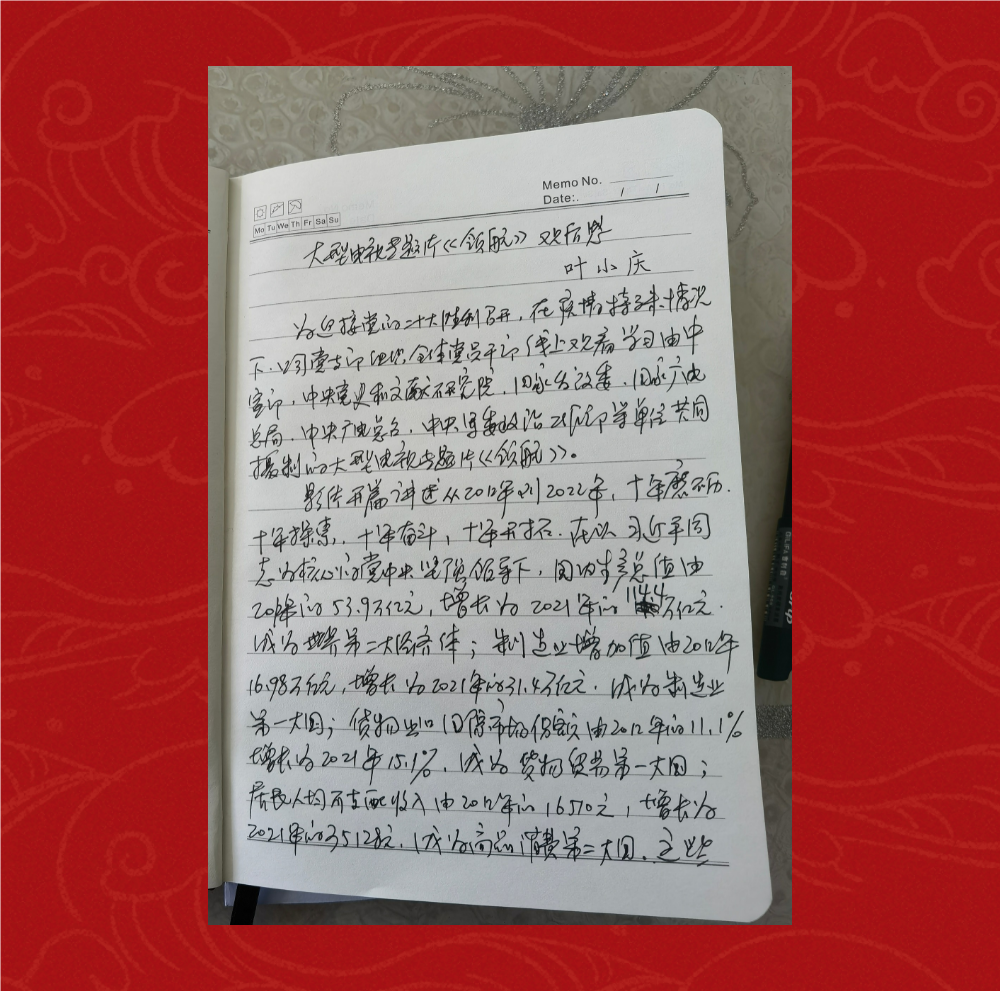 Memo No.
Date:. / /
Mo Tu We Th Fr Sa Su
大型电视专题片《领航》观后感
叶小庆
为迎接党的二十大胜利召开，在疫情特殊情况
下，公司党支部组织全体党员干部线上观看学习由中
宣部、中央党史和文献研究院、国家发改委、国家广电
总局、中央广电总台、中央军委政治工作部等单位共同
摄制的大型电视专题片《领航》。
影片开篇讲述从2012年到2022年，十年磨砺，
十年探索，十年奋斗，十年开拓。在以习近平同
志为核心的党中央坚强领导下，国内生产总值由
2012年的53.9万亿元，增长为2021年的114.4万亿元，
成为世界第二大经济体；制造业增加值由2012年
16.98万亿元，增长为2021年的31.4万亿元，成为制造业
第一大国；货物出口国际市场份额由2012年的11.1%
增长为2021年15.1%，成为货物贸易第一大国；
居民人均可支配收入由2012年的16510元，增长为
2021年的35128元，成为商品消费第二大国。这些